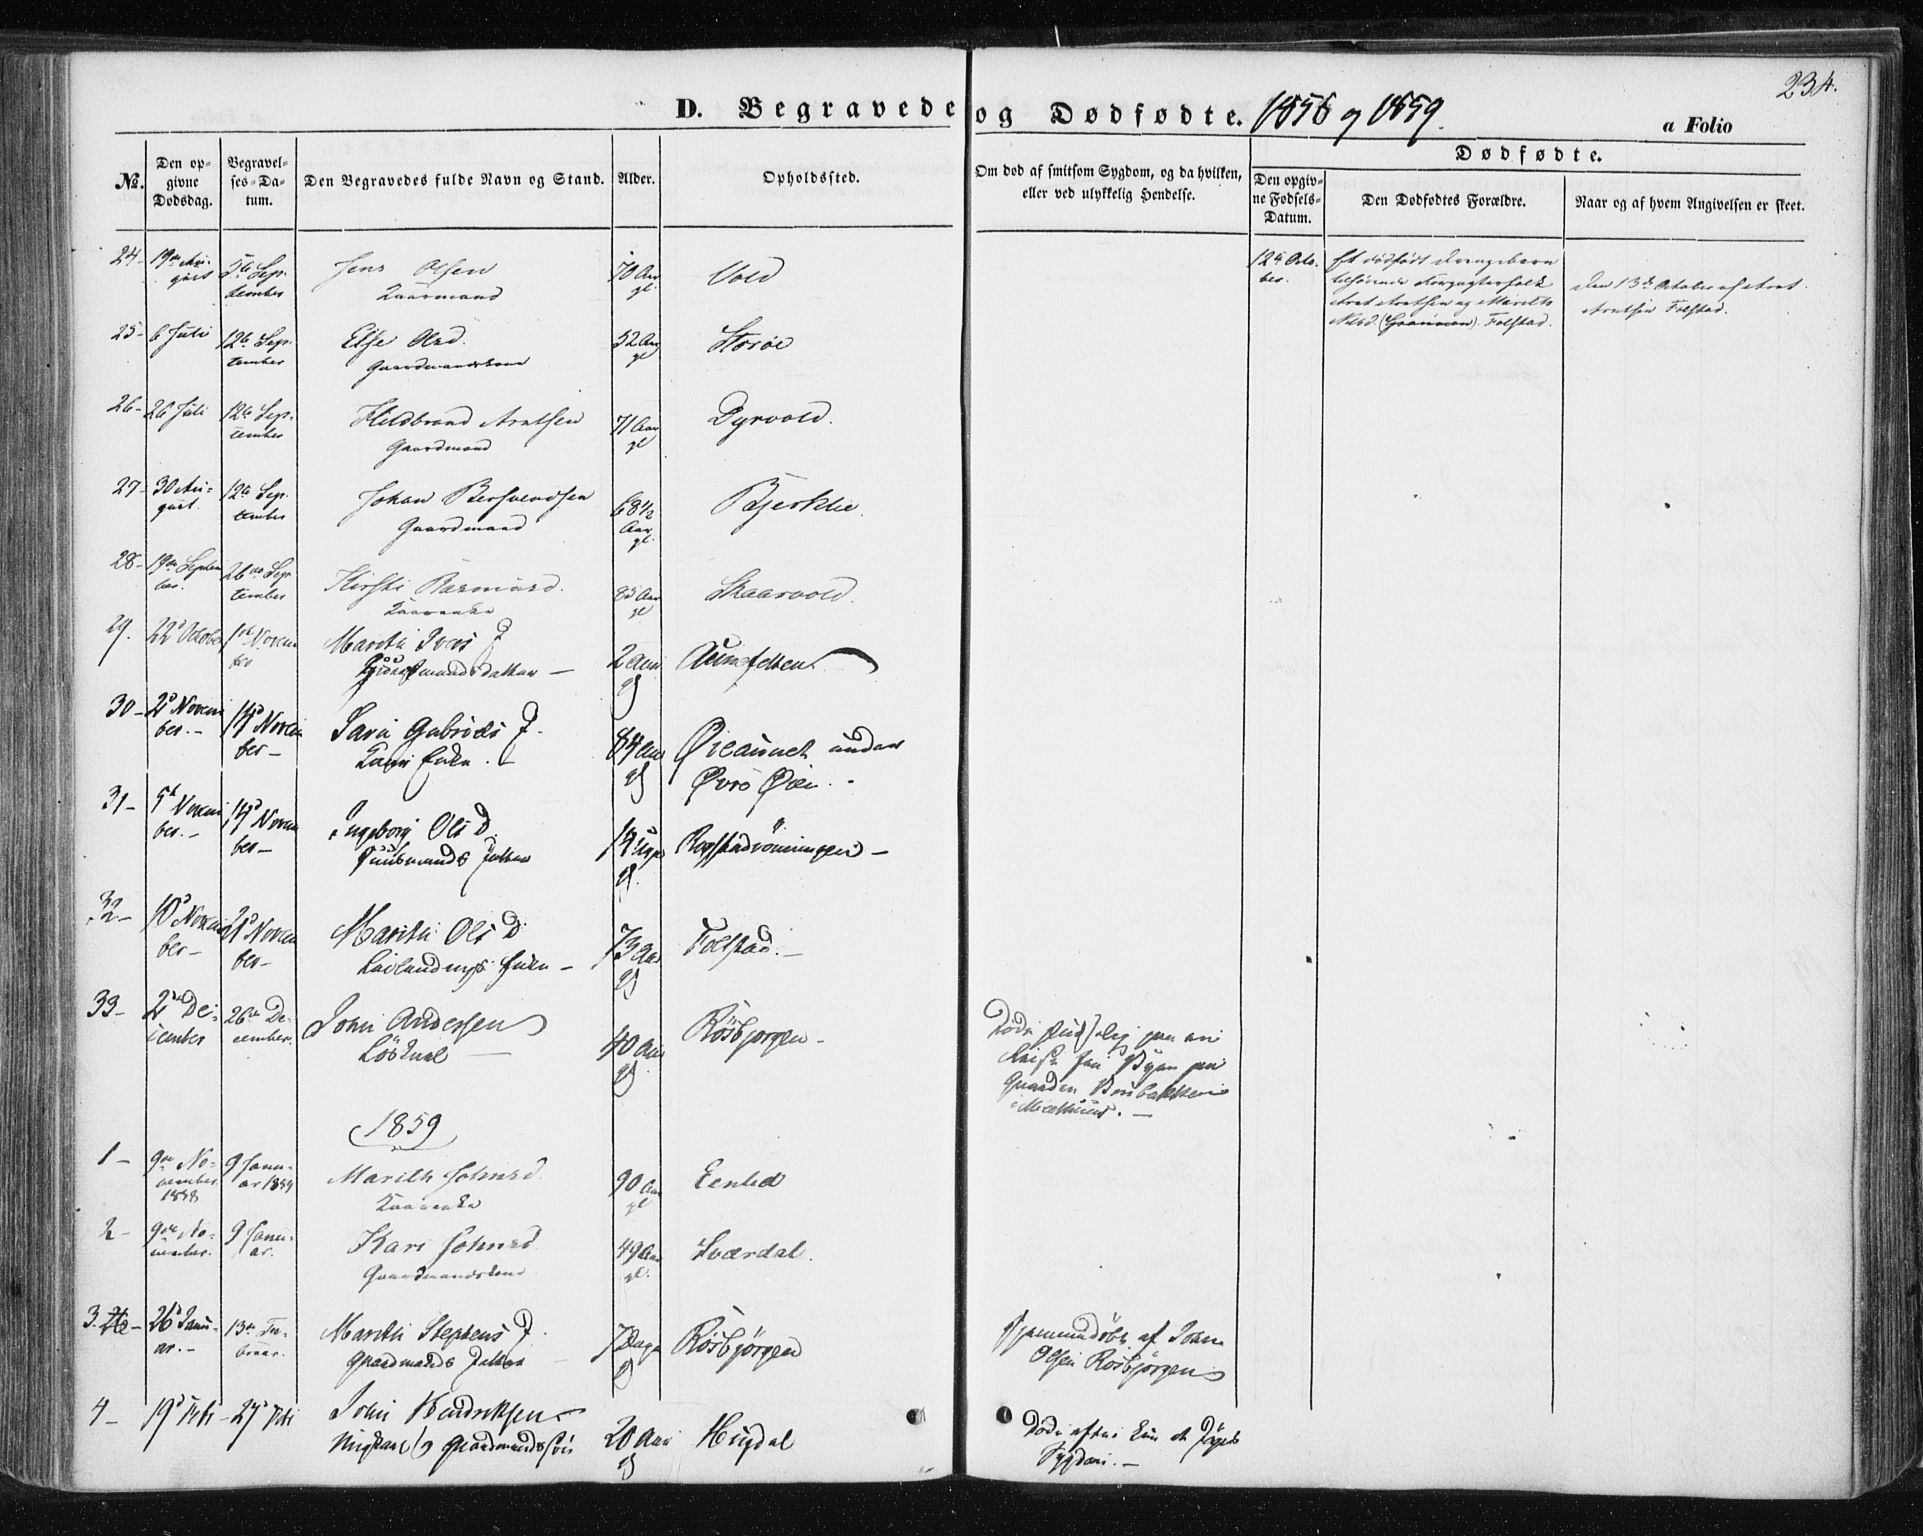 234.
D. Begravede og Dødfødte. 1858 og 1859.
a Folio
No.
Den opgivne Dødsdag.
Begravelses-Datum.
Den Begravedes fulde Navn og Stand.
Alder.
Opholdssted.
Om død af smitsom Sygdom, og da hvilken, eller ved ulykkelig Hendelse.
Dødfødte.
Den opgivne Fødsels-Datum.
Den Dødfødtes Forældre.
Naar og af hvem Angivelsen er skeet.
24- 19de August 5te September Jens Olsen 70 Aar gl. Vold
Kaarmand
12te October. Et dødfødt Drengebarn
tilhørende
Arnt Arntsen og Marith
Nilsd. Folstad.
Den 13de October af Arnt
Arntsen Folstad.
25- 6 Juli 12te September Else Olsd. 52 Aar gl Storøe
Gaardmandskone
26- 26 Juli 12te September Hildbrand Arntsen 71 Aar gl Dyrvold.
Gaardmand
27- 30 August. 12te September Johan Bersvendsen 68½ Aar gl. Bjerklie.
Gaardmand
28- 19de September. 26de September Kirsti Rasmusd. 85 Aar gl Skaarvold.
Kaarenke
29. 22d October 1ste November Marith Ivers D 2 Aar gl
30- 2d November.- 14d November- Sara Gabriels D. 84 Aar gl Øieaunet under
Øvre Øien.-
31- 5te November.- 14d November- Ingeborg Ols D. 14 Uger gl.
Huusmands Datter
32- 10d November- 21d November- Marith Ols D. 73 Aar gl Folstad.-
Enke-
33- 2den December 26de December. John Andersen 40 Aar gl Rösbjørgen-
Löskarl-
Døde paa en
Reise fra Byen paa
Gaarden
i Melhuus.-
1859
1- 9de November 1858 9 Januar 1859 Marith Johnsd. 90 Aar gl Eenlid
Kaarenke
2- 9de November. 9 Januar. Kari Johnsd. 49 Aar gl. Sværdal.
Gaardmandskone
3. 26d Januar.- 13de Februar. Marith Stephens D. 7 Dage gl Rösbjörgen
Gaardmands Datter
Hjemmedøbt af John
Olsen Rösbjørgen
4- 19d Feb- 27d Feb John Hendriksen 20 Aar gl Hugdal
Ungkarl og Gaardmandssön
Døde efter kun et Døgns
Sygdom.-